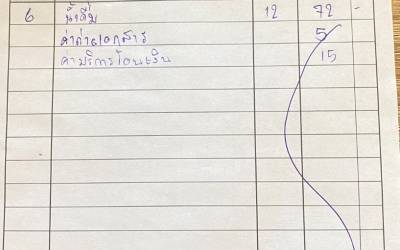 6 น้ำดื่ม 12 72 -
ค่าถ่ายเอกสาร 5
ค่าบริการโอนเงิน 15